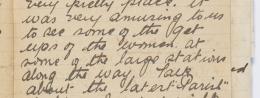 very pretty place. It
was very amusing to us
to see some of the get
ups of the women at
some of the large stations
along the way. Talk
about the latest "Paris"